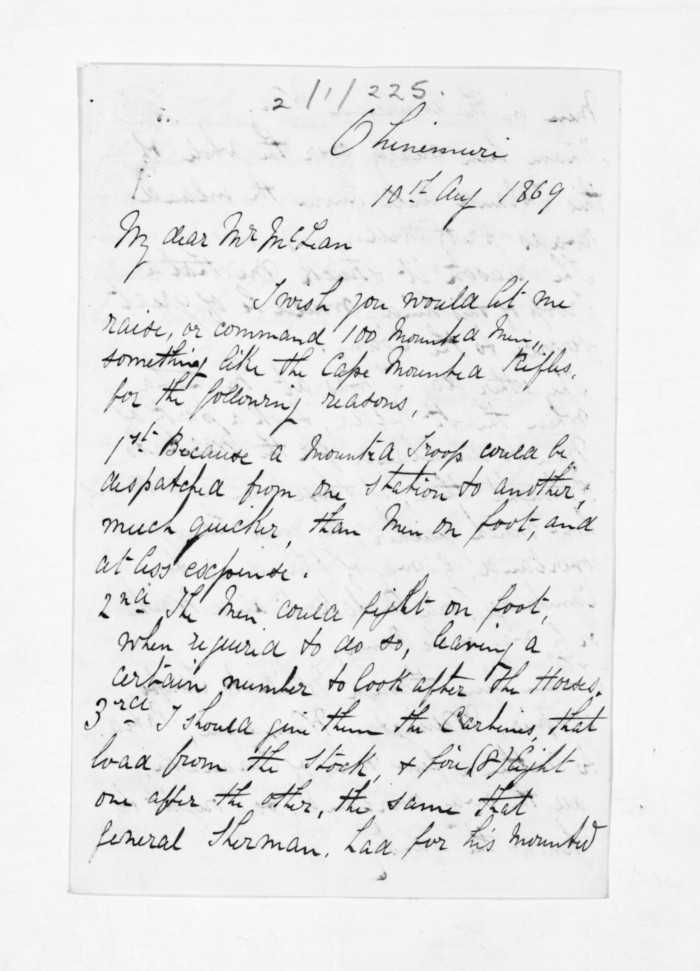 2/1/225.
Ohinemuri
10th Aug 1869
My dear Mr McLean
I wish you would let me
raise, or command 100 Mounted Men,,
something like the Cape Mounted Rifles,
for the following reasons,
1st Because a Mounted Troop could be
dispatched from one station to another,
much quicker, than Men on foot, and
at less expense.
2nd The Men could fight on foot,
when required to do so, leaving a
certain number to look after the Horses.
3rd I should give them the Carbines, that
load from the stock, & fire (8) Eight
one after the other, the same that
general Sherman. had for his Mounted